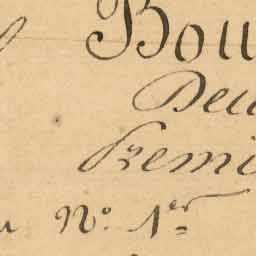 Bou
Deu
Premi
N.º 1.er